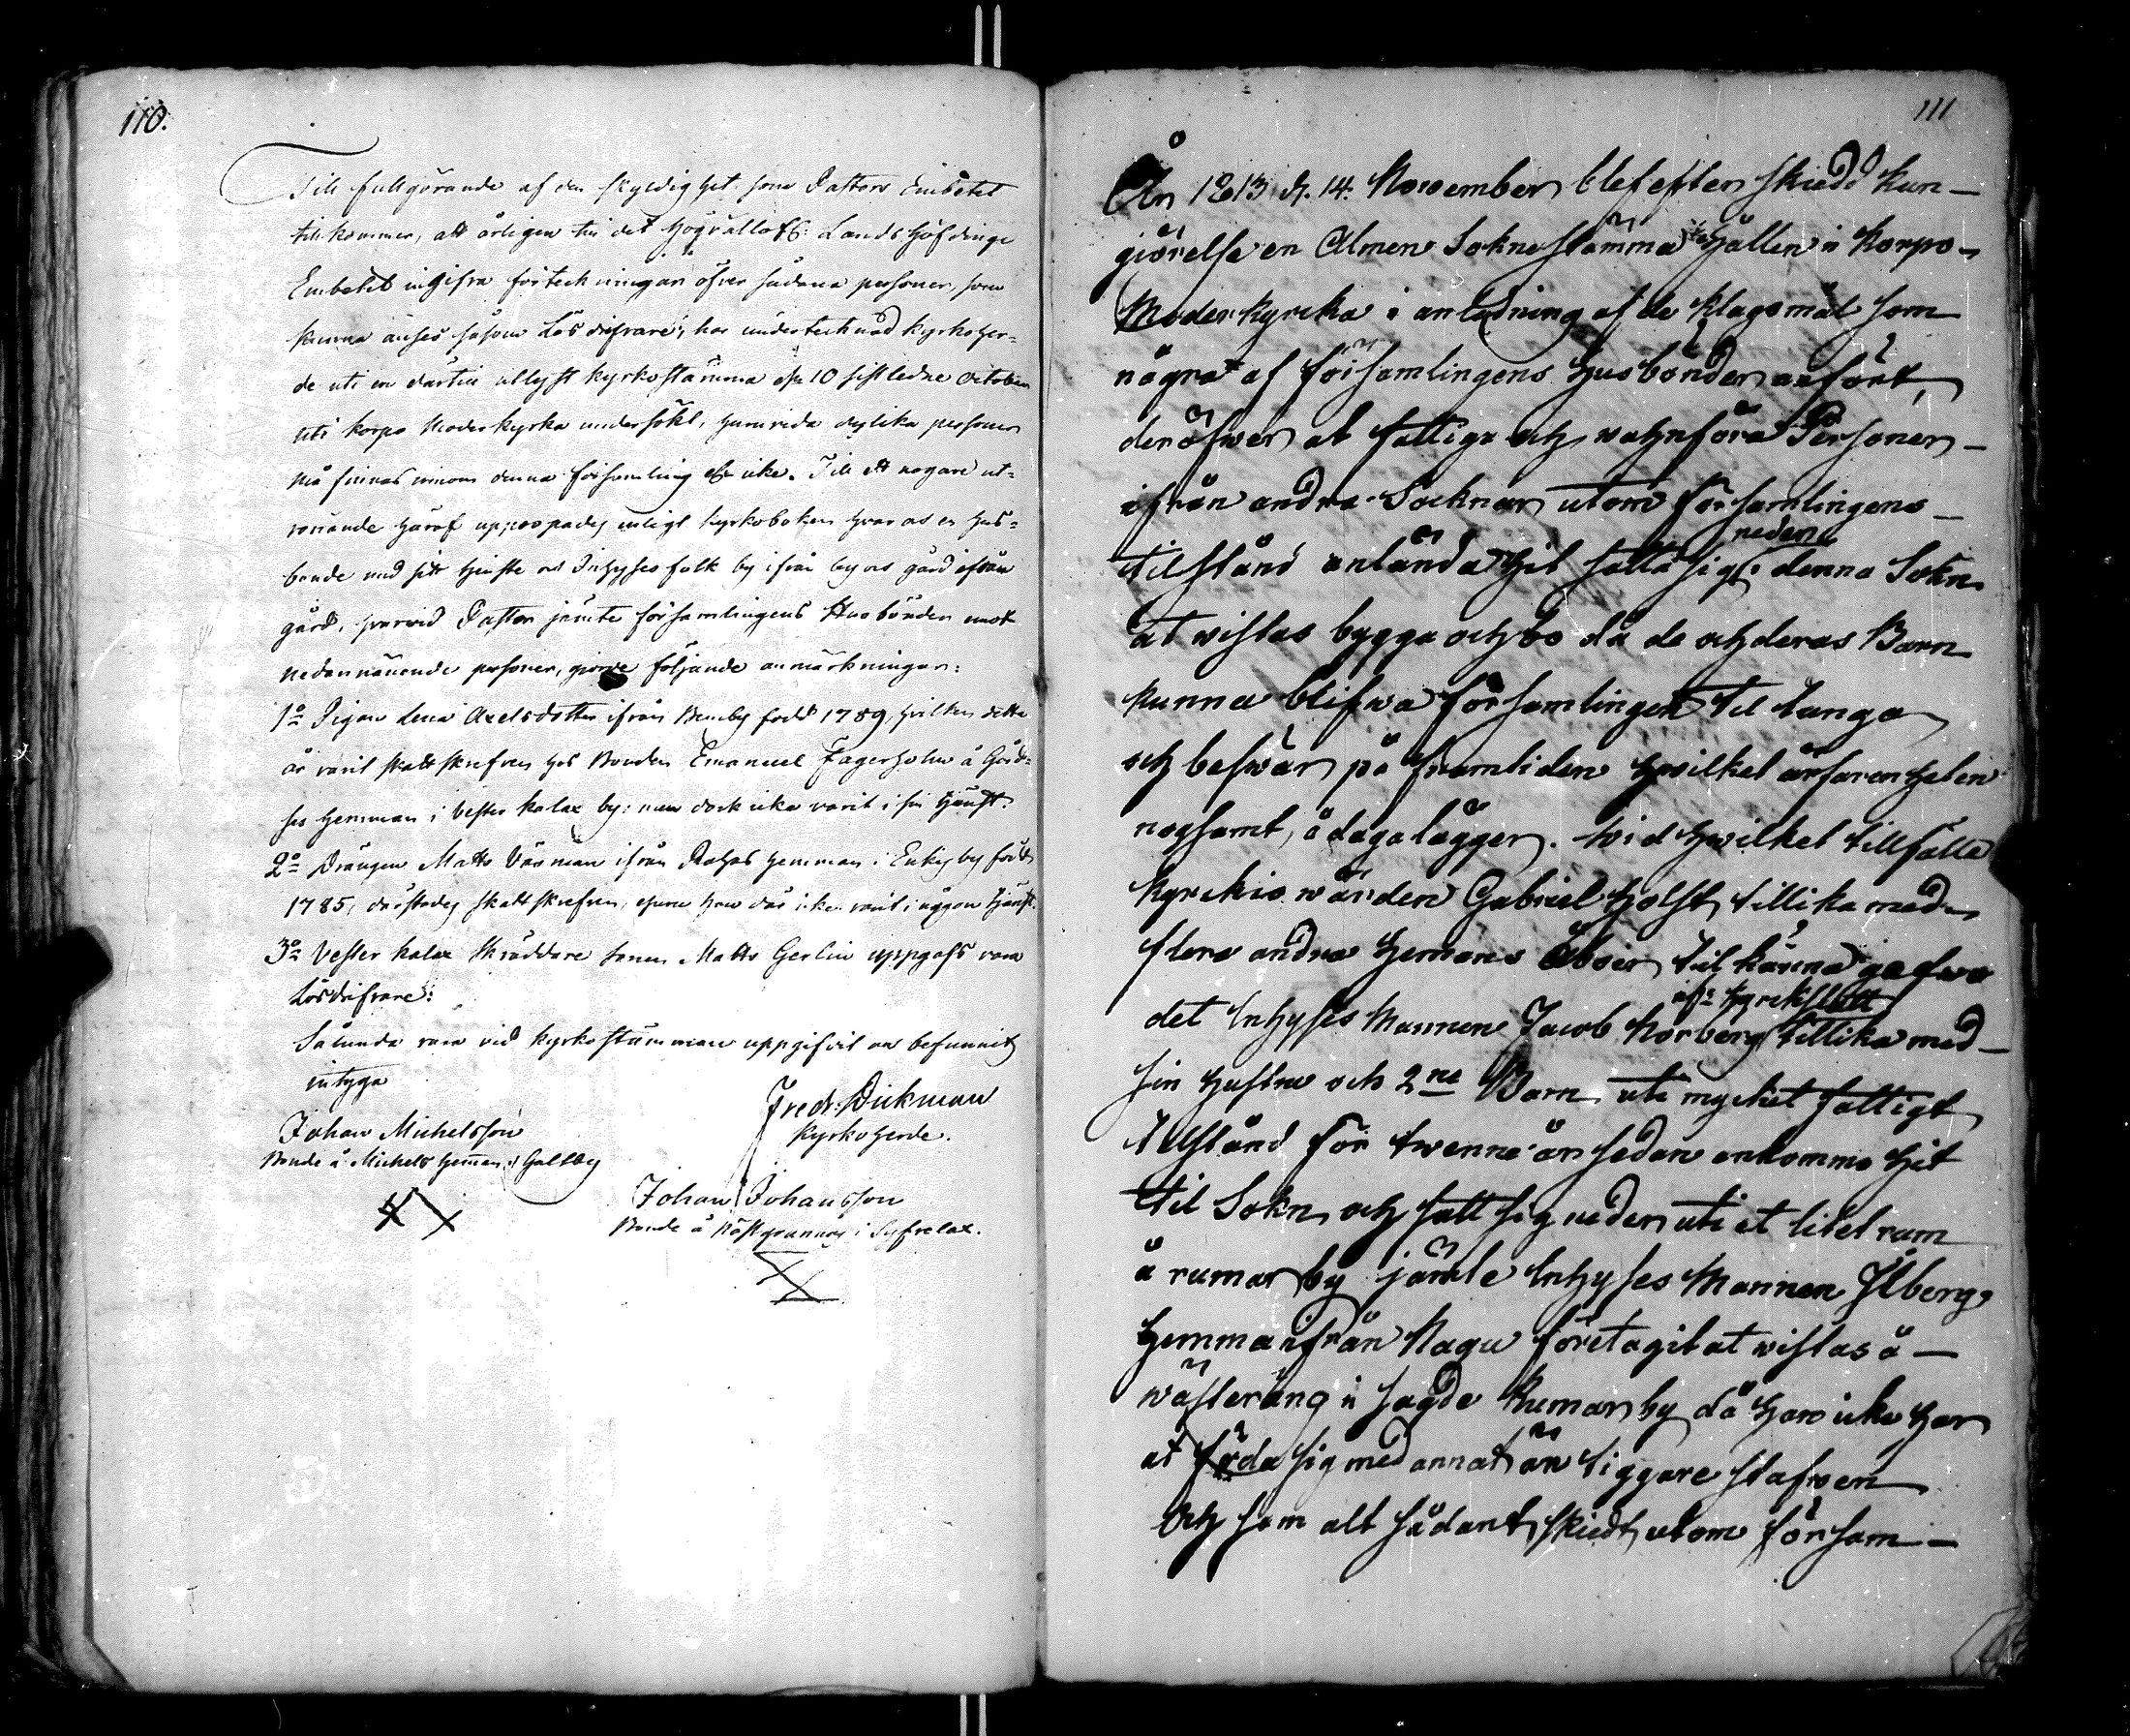 110.
Till fullgörande af den skyldighet som Pastors Embetet
tillkommer, att årligen till det Högvällofl: Landshöfdinge
Embetet ingifva förteckningar öfver sådana personer, som
kunna anses såsom Lösdrifvare; har undertecknad Kyrkoher=
de uti en dertill utlyst kyrkostämma d: 10 sistledne October
uti Korpo Moderkyrka undersökt, huruvida dylika personer
må finnas innom denna församling eller icke. Till ett nogare ut=
rönande häraf uppropades enligt kyrkoboken hvar och en hus=
bonde med sitt tjenste och Inhyses folk by ifrån by och gård ifrån
gård, hvarvid Pastor jämte församlingens Husbönder emot
nedannämnde personer, gjorde följande anmärkningar:
1o Pigan Lena Axelsdotter ifrån Benby född 1789, hvilken detta
år varit skattskrifven hos Bonden Emanuel Fagerholm å Gård=
ses hemman i Vester kalax by: men dock icke varit i sin tjenst.
2o Drängen Matts Väsman ifrån hemman i Enkis by född
1785, därstädes skattskrifven, ehuru han där icke varit i någon tjenst.
3o Vester kalax Skräddare sonen Matts Gerlin uppgafs vara
Lösdrifvare:
Sålunda vara vid kyrkostämman uppgifvit och befunnits
intyga
Fredr. Dickman
Kyrkoherde.
Johan Michelsson
Bonde å Michels Heman i Galtby
Johan Johansson
Bonde å Nästgrannas i Syfvelax.
111
År 1813 d. 14. November blef efter skiedd kun-
giörelse en Almen Sokne stämma hållen i Korpo
Moder kyrcka i anledning af de klagomål som
några af församlingens Husbönder anfört,
der öfwer at fattiga och wahnföra Personer
ifrån andra Socknar utom församlingens
neder i
tilstånd anlända hit satta sig denna Sokn
at wistas bygga och bo då de och deras Barn
kunna blifwa församlingen til tunga
och beswär på framtiden hwilket ärfarenheten
nogsamt, ådagalägger. wid hwilket tillfälle
kyrckio wärden Gabriel Holst tillika med
flere andra Hemans Åboer til känna gefwo
ifr: Kyrckslätt
det Inhyses Mannen Jacob Norberg tillika med
sin hustru och 2ne Barn uti mycket fattigt
tilstånd för twenne år sedan ankomme hit
til Sokn och satt sig neder uti et litet rum
å rumar by jämte Inhyses Mannen Ilberg
hemma ifrån Nagu företagit at wistas å
wästeräng i sagde Rumar by då han icke har
at föda sig med annat än tiggare stafwen
Och som alt sådant skiedt utom försam-